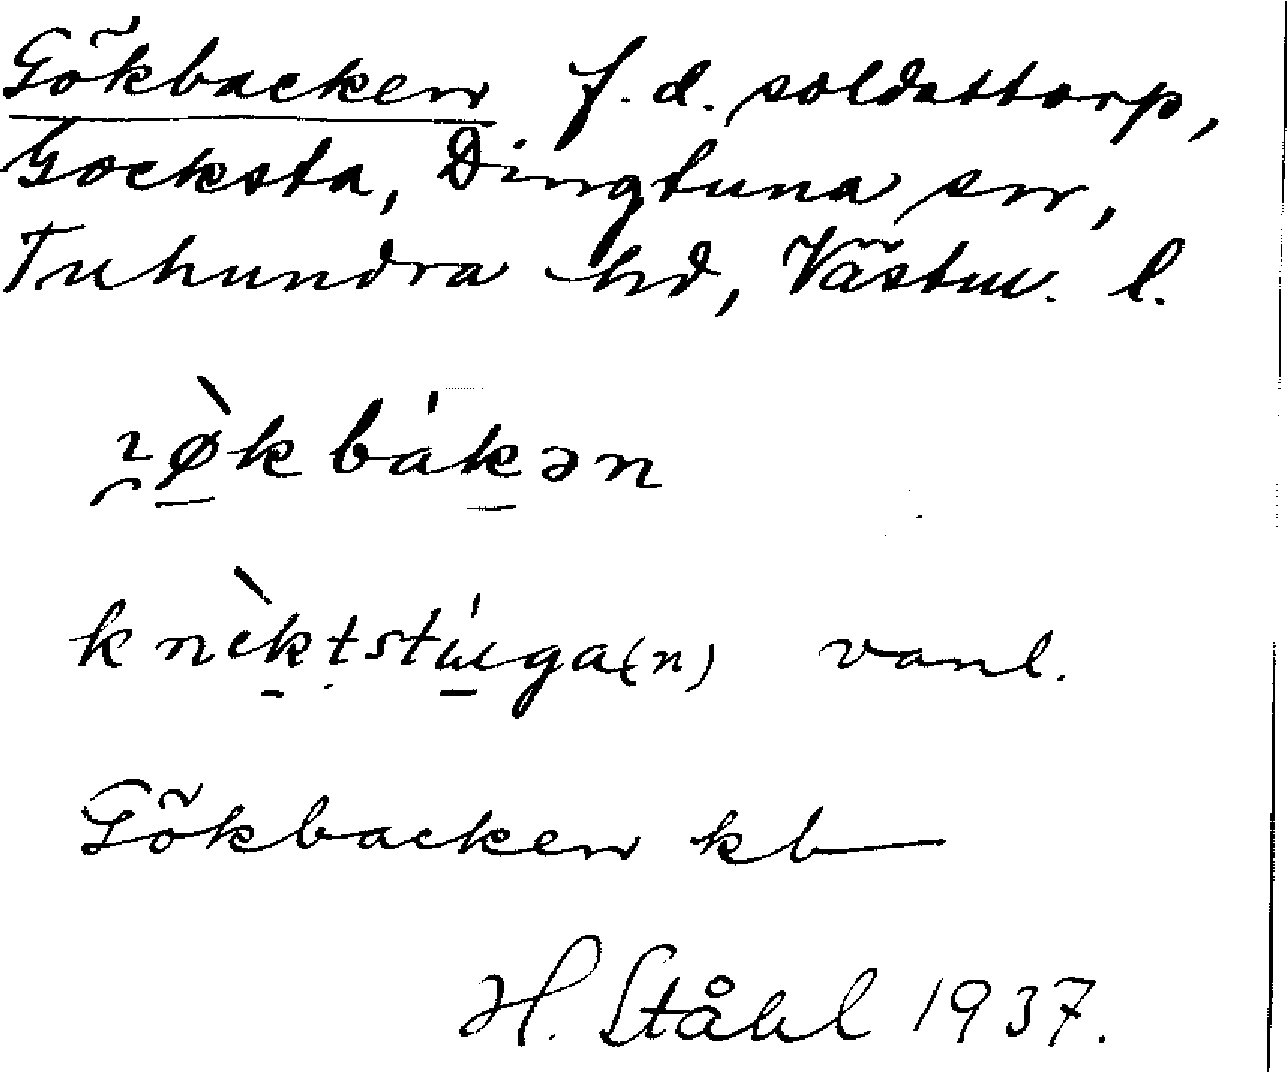 Gökbacken f. d. soldattorp,
Gocksta, Dingtuna sn,
Tuhundra hd, Västm. l.
bákən
knèktstúga(n) vanl.
Gökbacken kb
H. Ståhl 1937.